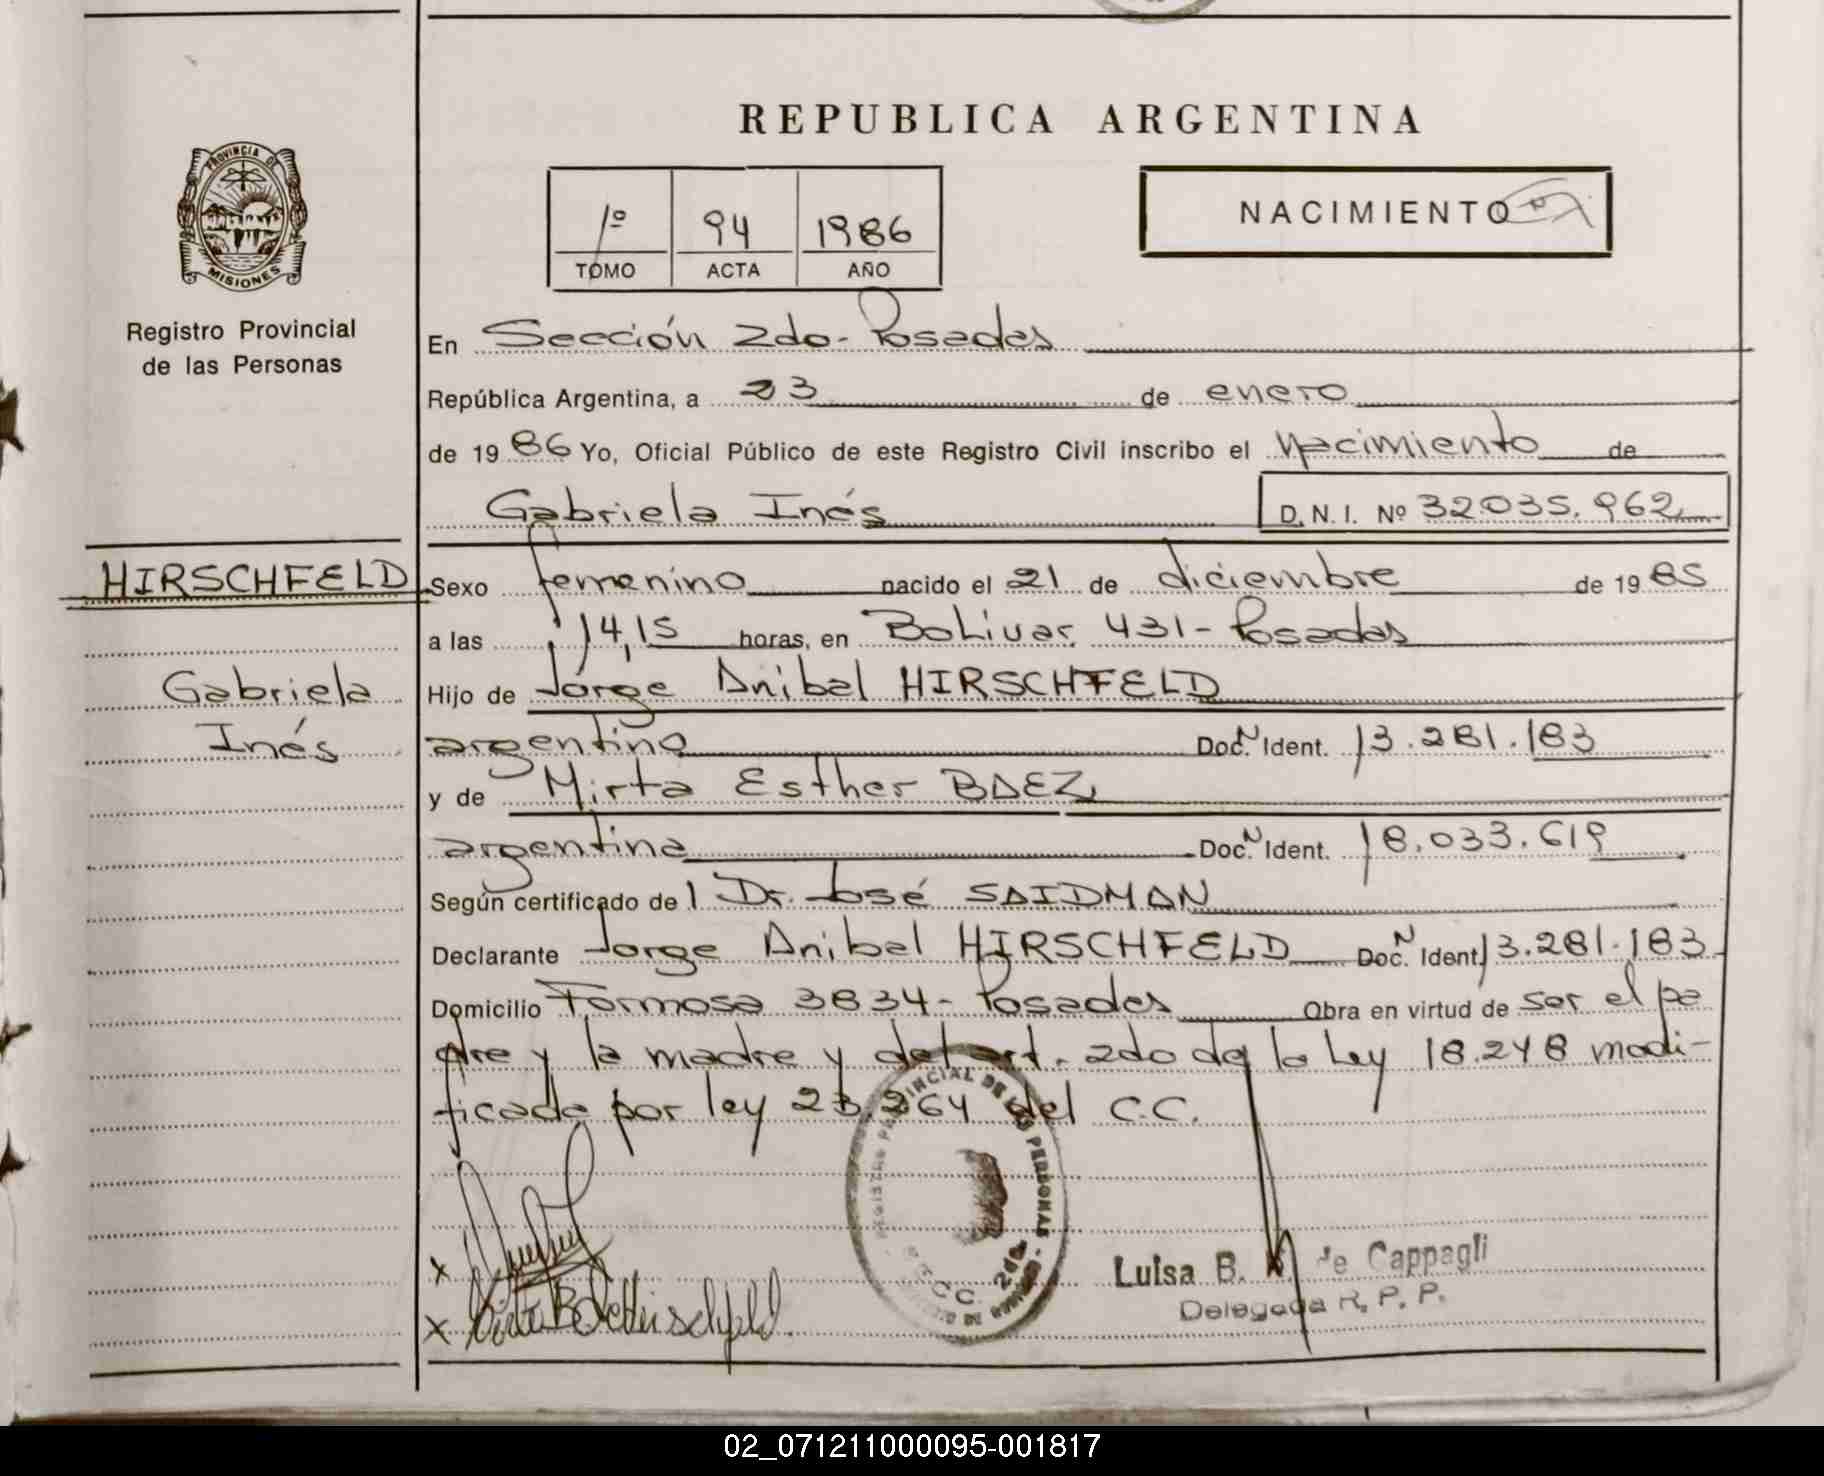 REPUBLICA ARGENTINA
PROVINCIA DE
MISIONES
Registro Provincial
de las Personas
1º 94 1986
TOMO ACTA AÑO
NACIMIENTO
En Sección 2do- Posadas
República Argentina, a 23 de enero
de 1986 Yo, Oficial Público de este Registro Civil inscribo el nacimiento de
Gabriela Inés D.N.I. Nº 32035.962
HIRSCHFELD
Gabriela
Inés
Sexo femenino nacido el 21 de diciembre de 1985
a las 14,15 horas, en Bolivar 431- Posadas
Hijo de Jorge Anibal HIRSCHFELD
argentino Doc. N Ident. 13.281.183
y de Mirta Esther BAEZ
argentina Doc. N Ident. 18.033.619
Según certificado de l Dr. José SAIDMAN
Declarante Jorge Anibal HIRSCHFELD Doc. N Ident. 13.281.183
Domicilio Formosa 3834- Posadas Obra en virtud de ser el pa
dre y la madre y del art. 2do de la Ley 18.248 modi-
ficada por ley 23.264 del C.C.
REGISTRO PROVINCIAL DE LAS PERSONAS
2da.
x
x
Luisa B. de Cappagli
Delegada R. P. P.
02_071211000095-001817